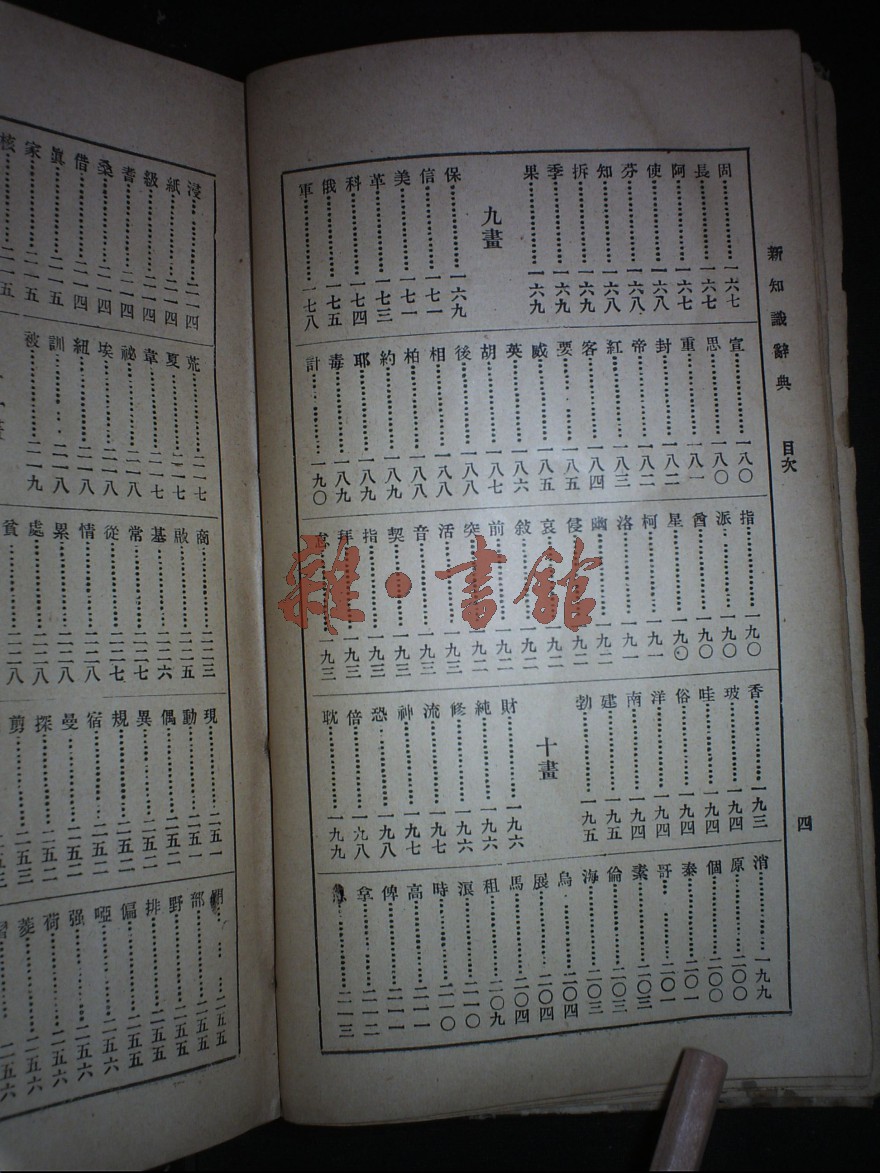 新知識辭典 目次 四
固…………一六七
長…………一六七
阿…………一六七
使…………一六八
芬…………一六八
知…………一六八
拆…………一六九
季…………一六九
果…………一六九
九畫
保…………一六九
信…………一七一
美…………一七一
革…………一七三
科…………一七四
俄…………一七五
軍…………一七八
宣…………一八〇
思…………一八〇
重…………一八一
封…………一八二
帝…………一八二
紅…………一八三
客…………一八四
要…………一八五
威…………一八五
英…………一八六
胡…………一八七
後…………一八八
相…………一八八
柏…………一八八
約…………一八九
耶…………一八九
毒…………一八九
計…………一九〇
指…………一九〇
派…………一九〇
酋…………一九〇
星…………一九〇
柯…………一九一
洛…………一九一
幽…………一九二
侵…………一九二
哀…………一九二
敘…………一九二
前…………一九二
突…………一九二
活…………一九三
音…………一九三
契…………一九三
指…………一九三
拜…………一九三
…………一九三
香…………一九三
玻…………一九四
哇…………一九四
俗…………一九四
洋…………一九四
南…………一九四
建…………一九五
勃…………一九五
十畫
財…………一九六
純…………一九六
修…………一九六
流…………一九七
神…………一九七
恐…………一九八
倍…………一九八
耽…………一九九
消…………一九九
原…………二〇〇
個…………二〇〇
泰…………二〇一
哥…………二〇一
素…………二〇三
倫…………二〇三
海…………二〇三
烏…………二〇四
展…………二〇四
馬…………二〇四
租…………二〇九
浪…………二一〇
時…………二一〇
高…………二一一
俾…………二一一
拿…………二一二
…………二一三
浸…………二一四
紙…………二一四
級…………二一四
耆…………二一四
桑…………二一四
借…………二一四
眞…………二一五
家…………二一五
核…………二一五
荒…………二一七
夏…………二一七
韋…………二一七
祕…………二一八
埃…………二一八
紐…………二一八
訓…………二一八
被…………二一九
商…………二二三
啟…………二二五
基…………二二六
常…………二二七
從…………二二七
情…………二二八
累…………二二八
處…………二二八
貧…………二二八
現…………二五一
動…………二五一
偶…………二五一
異…………二五一
規…………二五二
宿…………二五二
曼…………二五二
探…………二五二
剪…………二五三
部…………二五五
野…………二五五
排…………二五五
偏…………二五五
啞…………二五六
强…………二五六
荷…………二五六
菱…………二五六
雜·書館